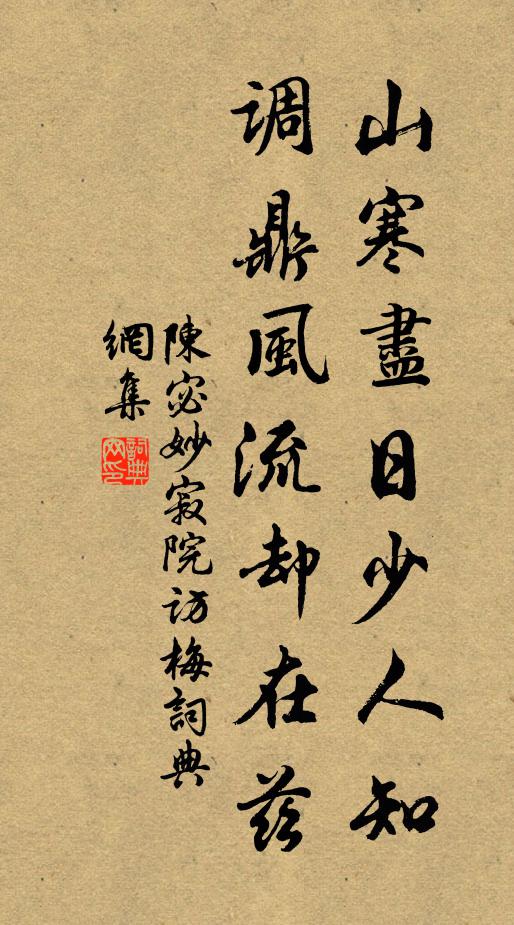 山寒盡日少人知
调鼎風流却在兹
陳宓妙寂院访梅詞典
網集
詞典網印